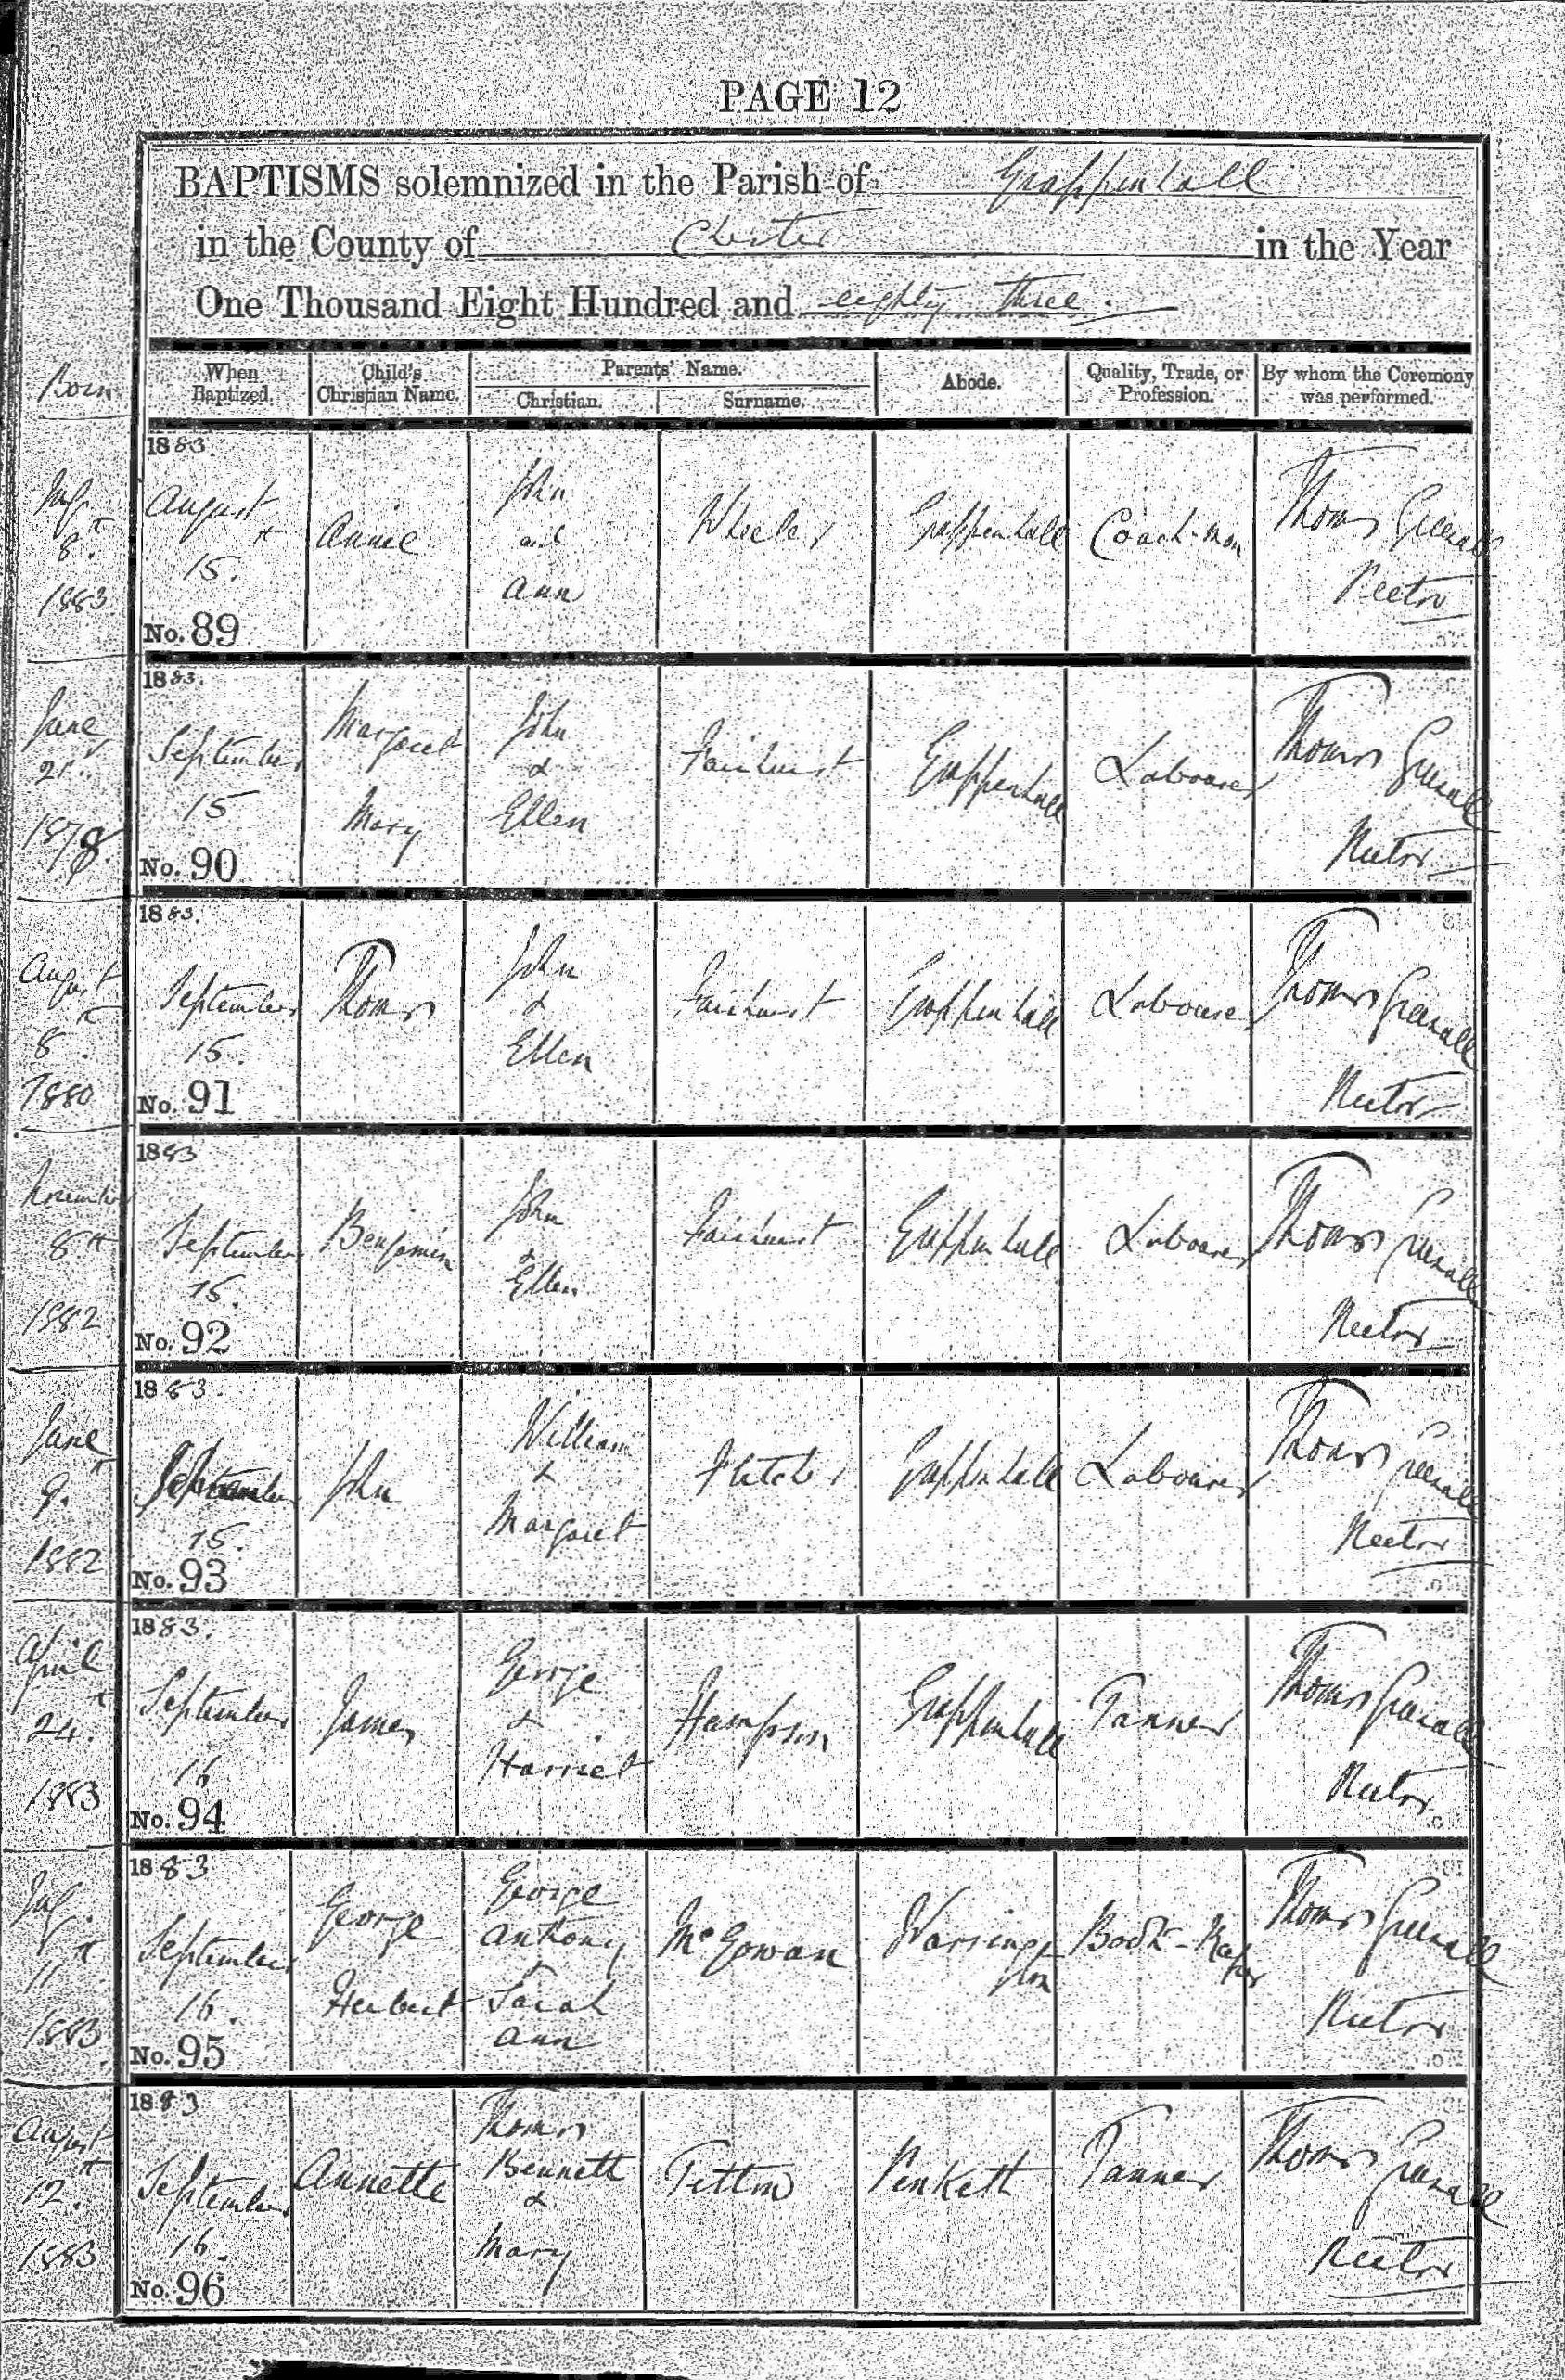 PAGE 12
BAPTISMS solemnized in the Parish of Grappenhall
in the County of Chester in the Year
One Thousand Eight Hundred and eighty three.
Born
When Baptized.
Child's Christian Name.
Parents' Name.
Christian.
Surname.
Abode.
Quality, Trade, or Profession.
By whom the Ceremony was performed.
July 8th 1883
1883.
August 15.
No. 89
Annie
John
and
Ann
Wheeler
Grappenhall
Coach-man
Thomas Greenall
Rector
June 21st
1883.
September 15
No. 90
Margaret
Mary
John
&
Ellen
Fairhurst
Grappenhall
Labourer
Thomas Greenall
Rector
August 8th 1880
1883.
September 15.
No. 91
Thomas
John
&
Ellen
Fairhurst
Grappenhall
Labourer
Thomas Greenall
Rector
November 8th 1882
1883
September 15.
No. 92
Benjamin
John
&
Ellen
Fairhurst
Grappenhall
Labourer
Thomas Greenall
Rector
June 9th 1882
1883.
September 15.
No. 93
John
William
&
Margaret
Fletcher
Grappenhall
Labourer
Thomas Greenall
Rector
April 24th 1883
1883.
September 16
No. 94
James
George
&
Harriet
Hampson
Grappenhall
Tanner
Thomas Greenall
Rector
July 11th 1883
1883
September 16.
No. 95
George
Herbert
George
Anthony
&
Sarah
Ann
McGowan
Warrington
Book-Keeper
Thomas Greenall
Rector
August 12th 1883
1883
September 16.
No. 96
Annette
Thomas
Bennett
&
Mary
Tetlow
Penketh
Tanner
Thomas Greenall
Rector